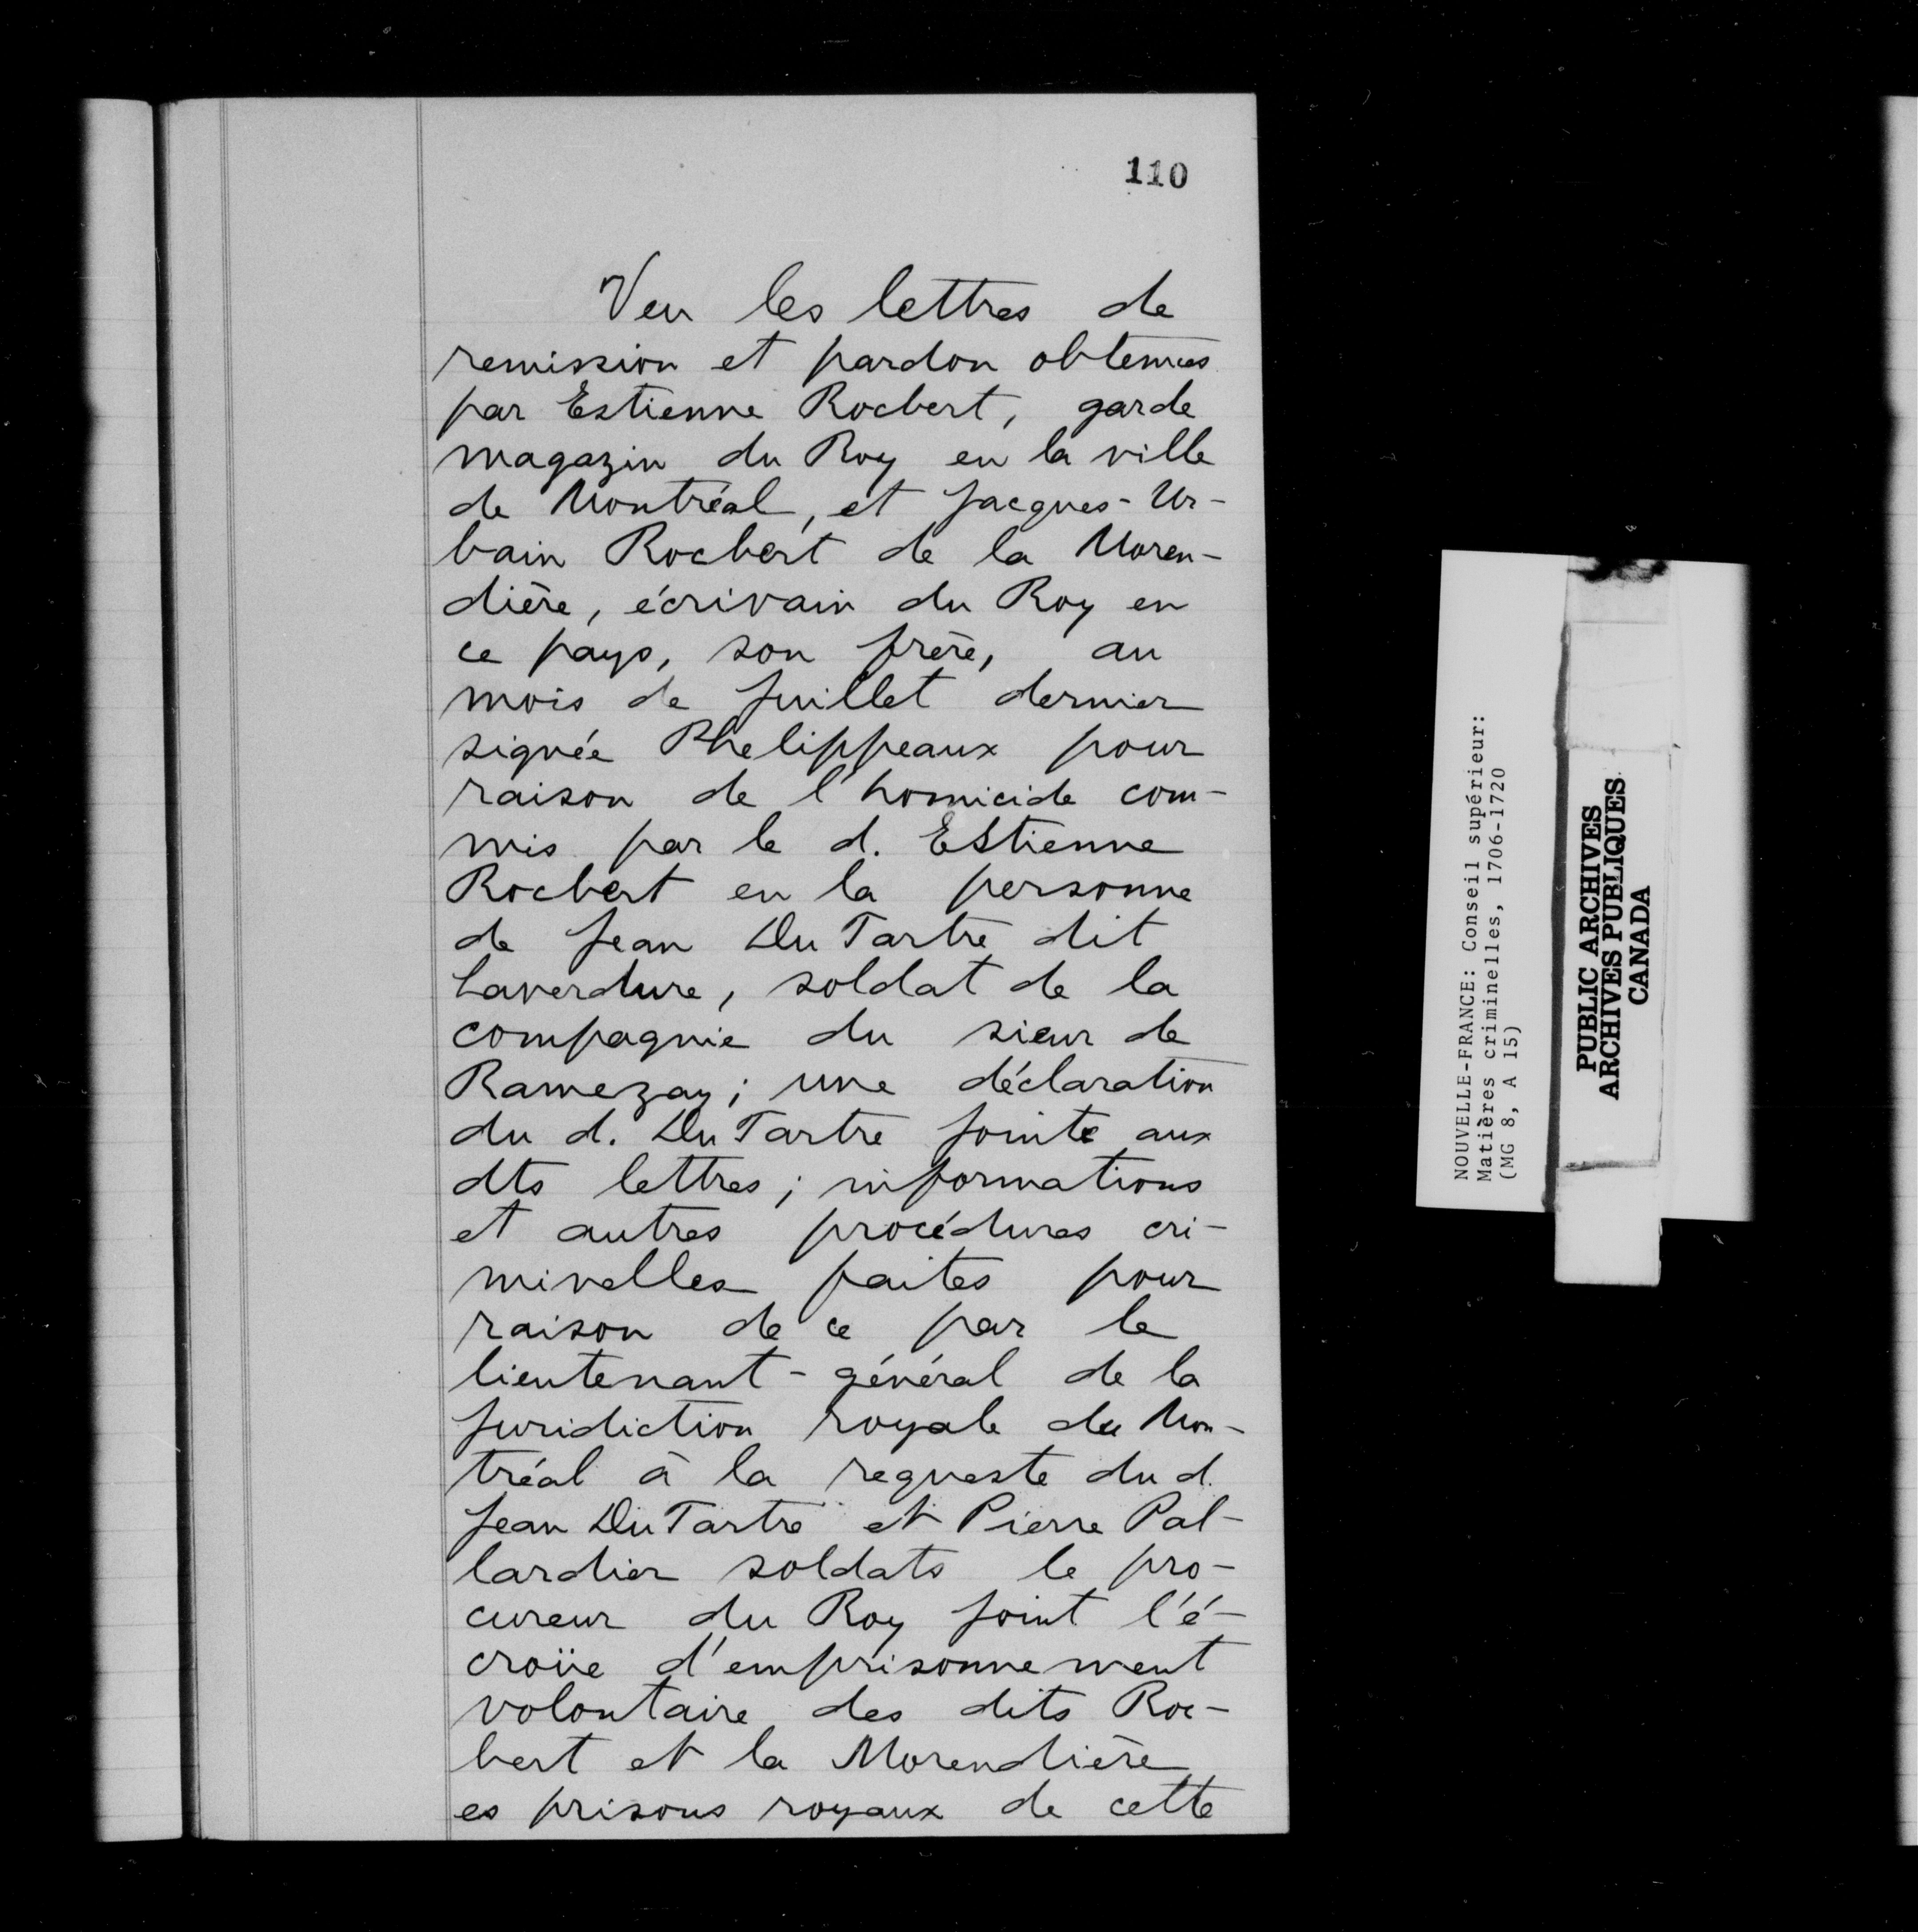 110
Veu les lettres de
remission et pardon obtenues
par Estienne Rocbert, garde
magazin du Roy en la ville
de Montréal, et Jacques-Ur-
bain Rocbert de la Moren-
dière, écrivain du Roy en
ce pays, son frère, au
mois de Juillet dernier
signée Phelippeaux pour
raison de l'homicide com-
mis par le d. Estienne
Rocbert en la personne
de Jean DuTartre dit
Laverdure, soldat de la
compagnie du sieur de
Ramezay; une déclaration
du d. DuTartre jointe aux
dts lettres; informations
et autres procédures cri-
minelles faites pour
raison de ce par le
lieutenant-général de la
Juridiction royale de Mon-
tréal à la requeste du d.
Jean DuTartre et Pierre Pal-
lardier soldats le pro-
cureur du Roy joint l'é-
croüe d'emprisonnement
volontaire des dits Roc-
bert et la Morendière
es prisons royaux de cette
NOUVELLE-FRANCE: Conseil supérieur:
Matières criminelles, 1706-1720
(MG 8, A 15)
PUBLIC ARCHIVES
ARCHIVES PUBLIQUES
CANADA